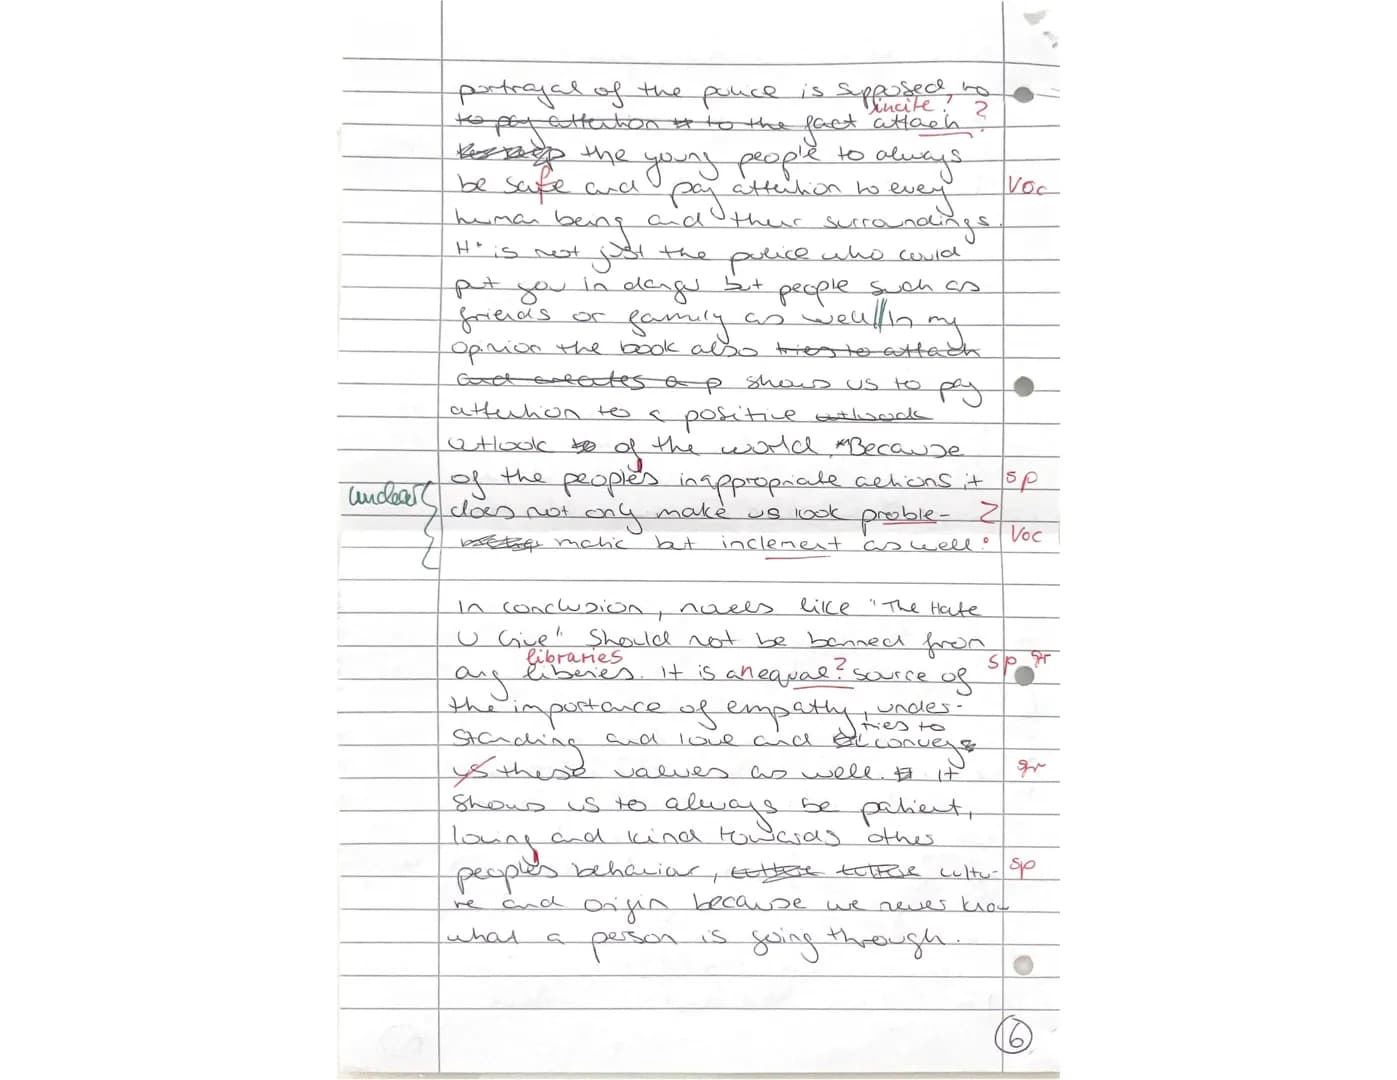 portrayal of the police is supposed to
incite? ?
to pay attention to the fact attach
the young people to always
be safe and pay attention to every Voc
human being and their surroundings.
It is not just the police who could
put you in danger but people such as
friends or family as well // In my
opinion the book also tries to attach
and creates a p shows us to pay
attention to a positive outlook
outlook to of the world. Because
of the people's inappropriate actions it sp
unclear does not only make us look proble- ?
matic but inclement as well. Voc
In conclusion, novels like "The Hate
U Give" should not be banned from
libraries sp gr
any liberies. It is an equal? source of
the importance of empathy, under-
tries to
standing and love and conveys
us these values as well. It gr
shows us to always be patient,
loving and kind towards other
people's behavior, culture cultu- sp
re and origin because we never know
what a person is going through.
6